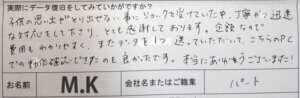 実際にデータ復旧をしてみていかがですか?
子供の思い出がとり出せない事にショックを受けていた中、丁寧かつ迅速
な対応をして下さり、とても感謝しております。金額など
費用もわかりやすく、またデータを1つ送っていただいて、こちらのPC
での動作確認ができたのも良かったです。本当にありがとうございました!
お名前
M.K
会社名またはご職業
パート